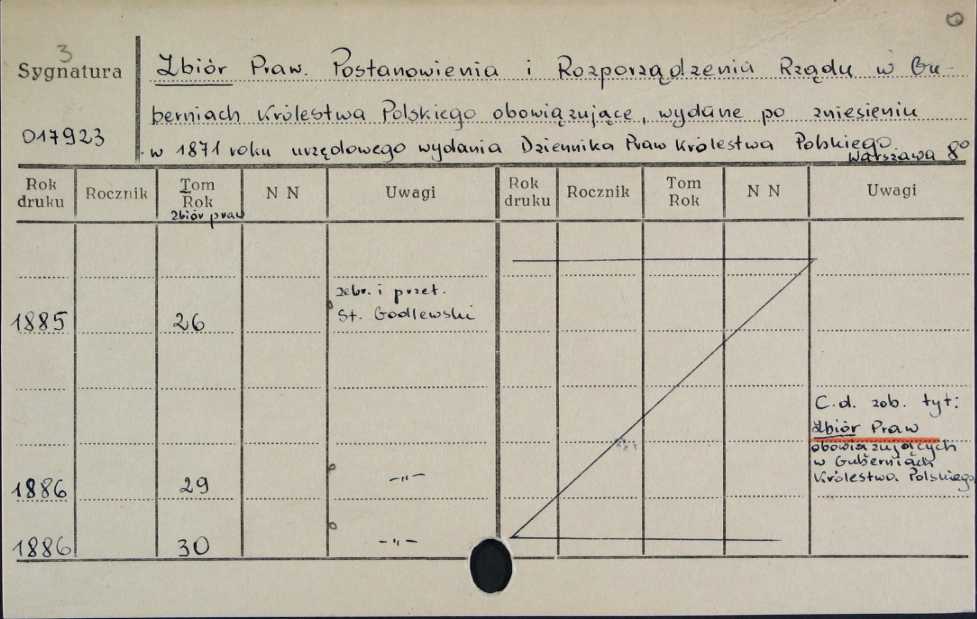 3
Sygnatura
017923
Zbiór Praw. Postanowienia i Rozporządzenia Rządu w Gu-
berniach Królestwa Polskiego obowiązujące, wydane po zniesieniu
w 1871 roku urzędowego wydania Dziennika Praw Królestwa Polskiego.
Warszawa 8°
Rok druku Rocznik Tom Rok N N Uwagi Rok druku Rocznik Tom Rok N N Uwagi
zbiór praw
zebr. i przeł.
1885 26 St. Godlewski
C.d. zob. tyt:
Zbiór Praw
obowiązujących
w Guberniach
Królestwa Polskiego
1886 29 -„-
1886 30 -„-